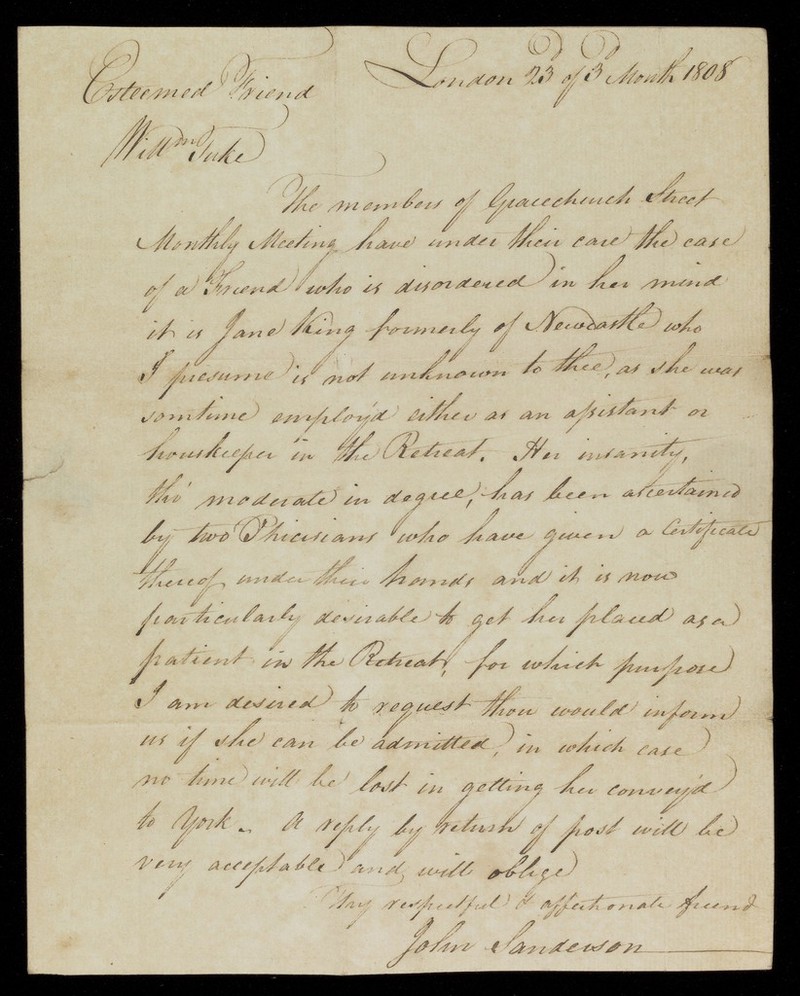 London 23d of 3d Month 1808
Esteemed Friend
Willm Tuke
The members of Gracechurch Street
Monthly Meeting have under their care the case
of a Friend who is disordered in her mind
it is Jane King formerly of Newcastle who
I presume is not unknown to thee, as she was
somtime employ'd either as an assistant or
houskeeper in the Retreat. Her insanity,
tho' moderate in degree, has been ascertained
by two Phicisians who have given a Certificate
thereof under their hands and it is now
particularly desirable to get her placed as a
patient in the Retreat, for which purpose
I am desired to request thou would inform
us if she can be admitted, in which case
no time will be lost in getting her convey'd
to York. A reply by return of post will be
very acceptable and will oblige
Thy respectful & affectionate friend
John Sanderson